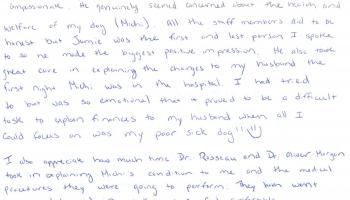 compassionate. He genuinely seemed concerned about the health and
welfare of my dog (Michi). All the staff members did to be
honest but Jamie was the first and last person I spoke
to so he made the biggest positive impression. He also took
great care in explaining the charges to my husband the
first night Michi was in the hospital. I had tried
to but was so emotional that it proved to be a difficult
task to explain finances to my husband when all I
could focus on was my poor sick dog!!
I also appreciate how much time Dr. Rosseau and Dr. Oliver Morgan
took in explaining Michi's condition to me and the medical
procedures they were going to perform. They both went